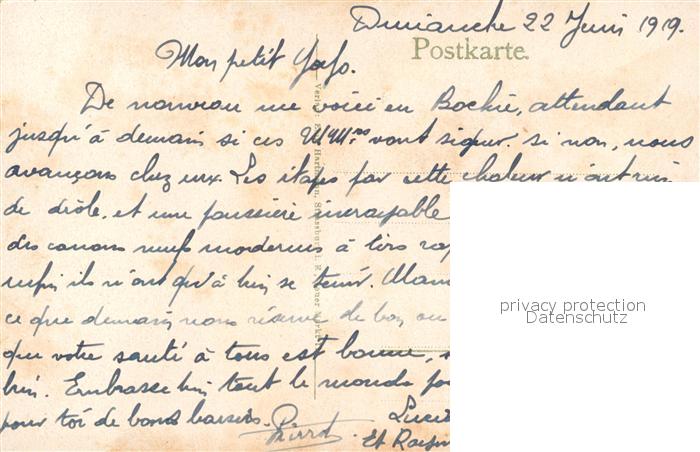 Dimanche 22 Juin 1919.
Postkarte.
Mon petit
De nouveau me voici en Bochie, attendant
jusqu'à demain si ces MM.rs vont signer. si non, nous
avançons chez eux. Les étapes par cette chaleur n'ont rien
de drôle, et une poussière incroyable
des canons neufs modernes à tirs
enfin ils n'ont qu'à bien se tenir.
ce que demain nous réserve de bon ou
que votre santé à tous est bonne,
bien. Embrasse bien tout le monde
pour toi de bons baisers. Pierrot
Et
privacy protection
Datenschutz